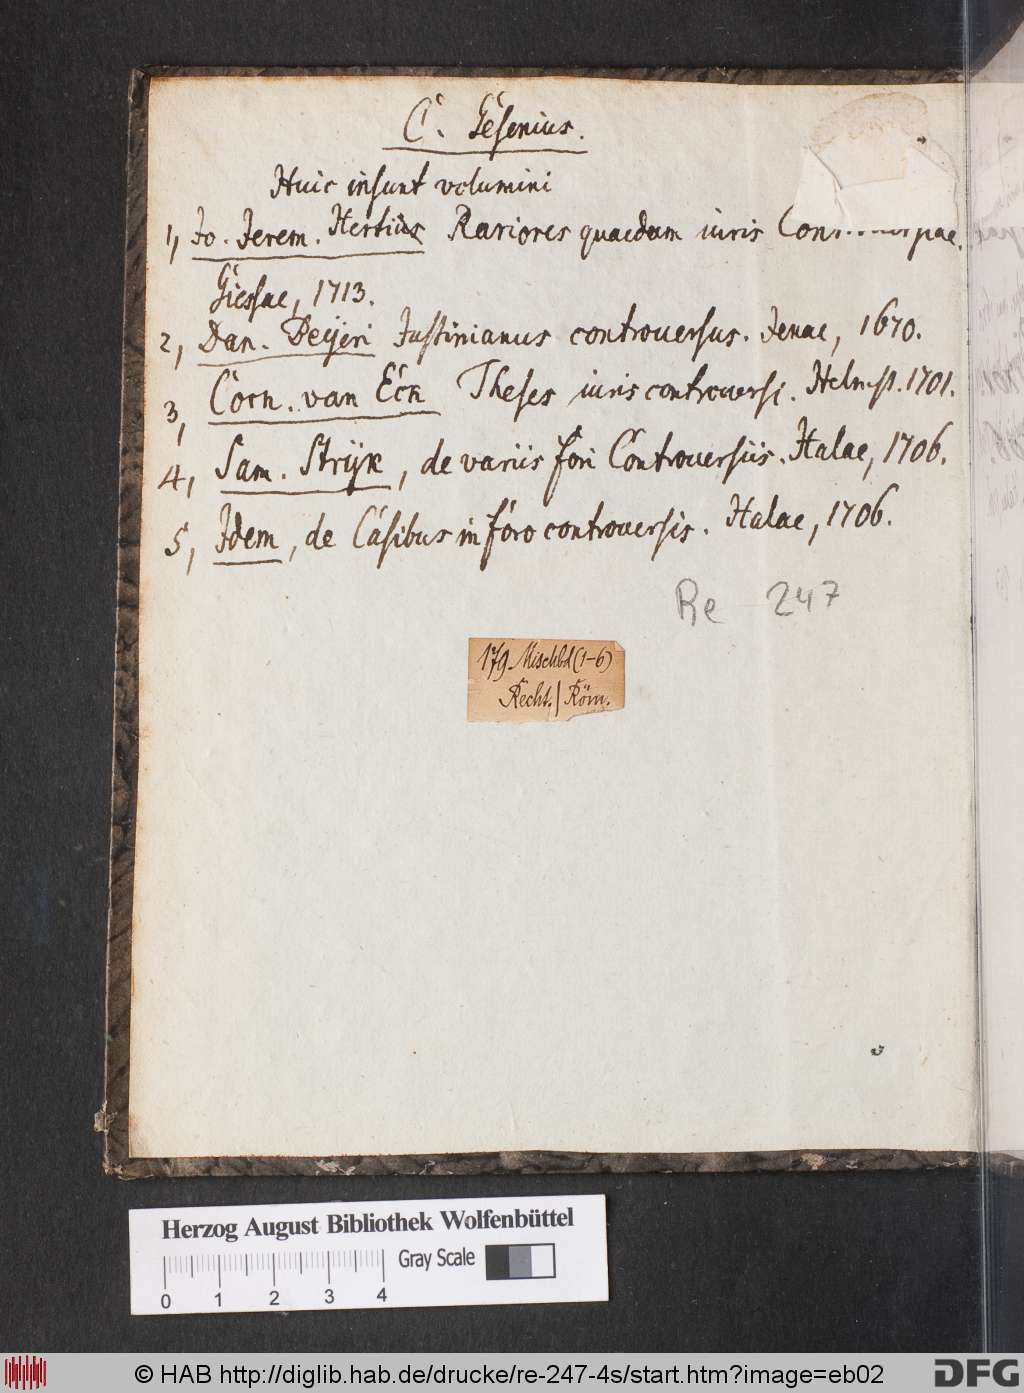 C. Gesenius.
Huic insunt volumini
1, Jo. Jerem. Hertius Rariores quaedam iuris
Giessae, 1713.
2, Dan. Beijeri Justinianus controversus. Jenae, 1670.
3, Corn. van Eck Theses iuris controversi. Helmst. 1701.
4, Sam. Strijk, de variis fori Controversiis. Halae, 1706.
5, Idem, de Casibus in foro controversis. Halae, 1706.
Re 247
179 Mischbd (1-6)
Recht. / Röm.
Herzog August Bibliothek Wolfenbüttel
Gray Scale
0 1 2 3 4
© HAB http://diglib.hab.de/drucke/re-247-4s/start.htm?image=eb02
DFG